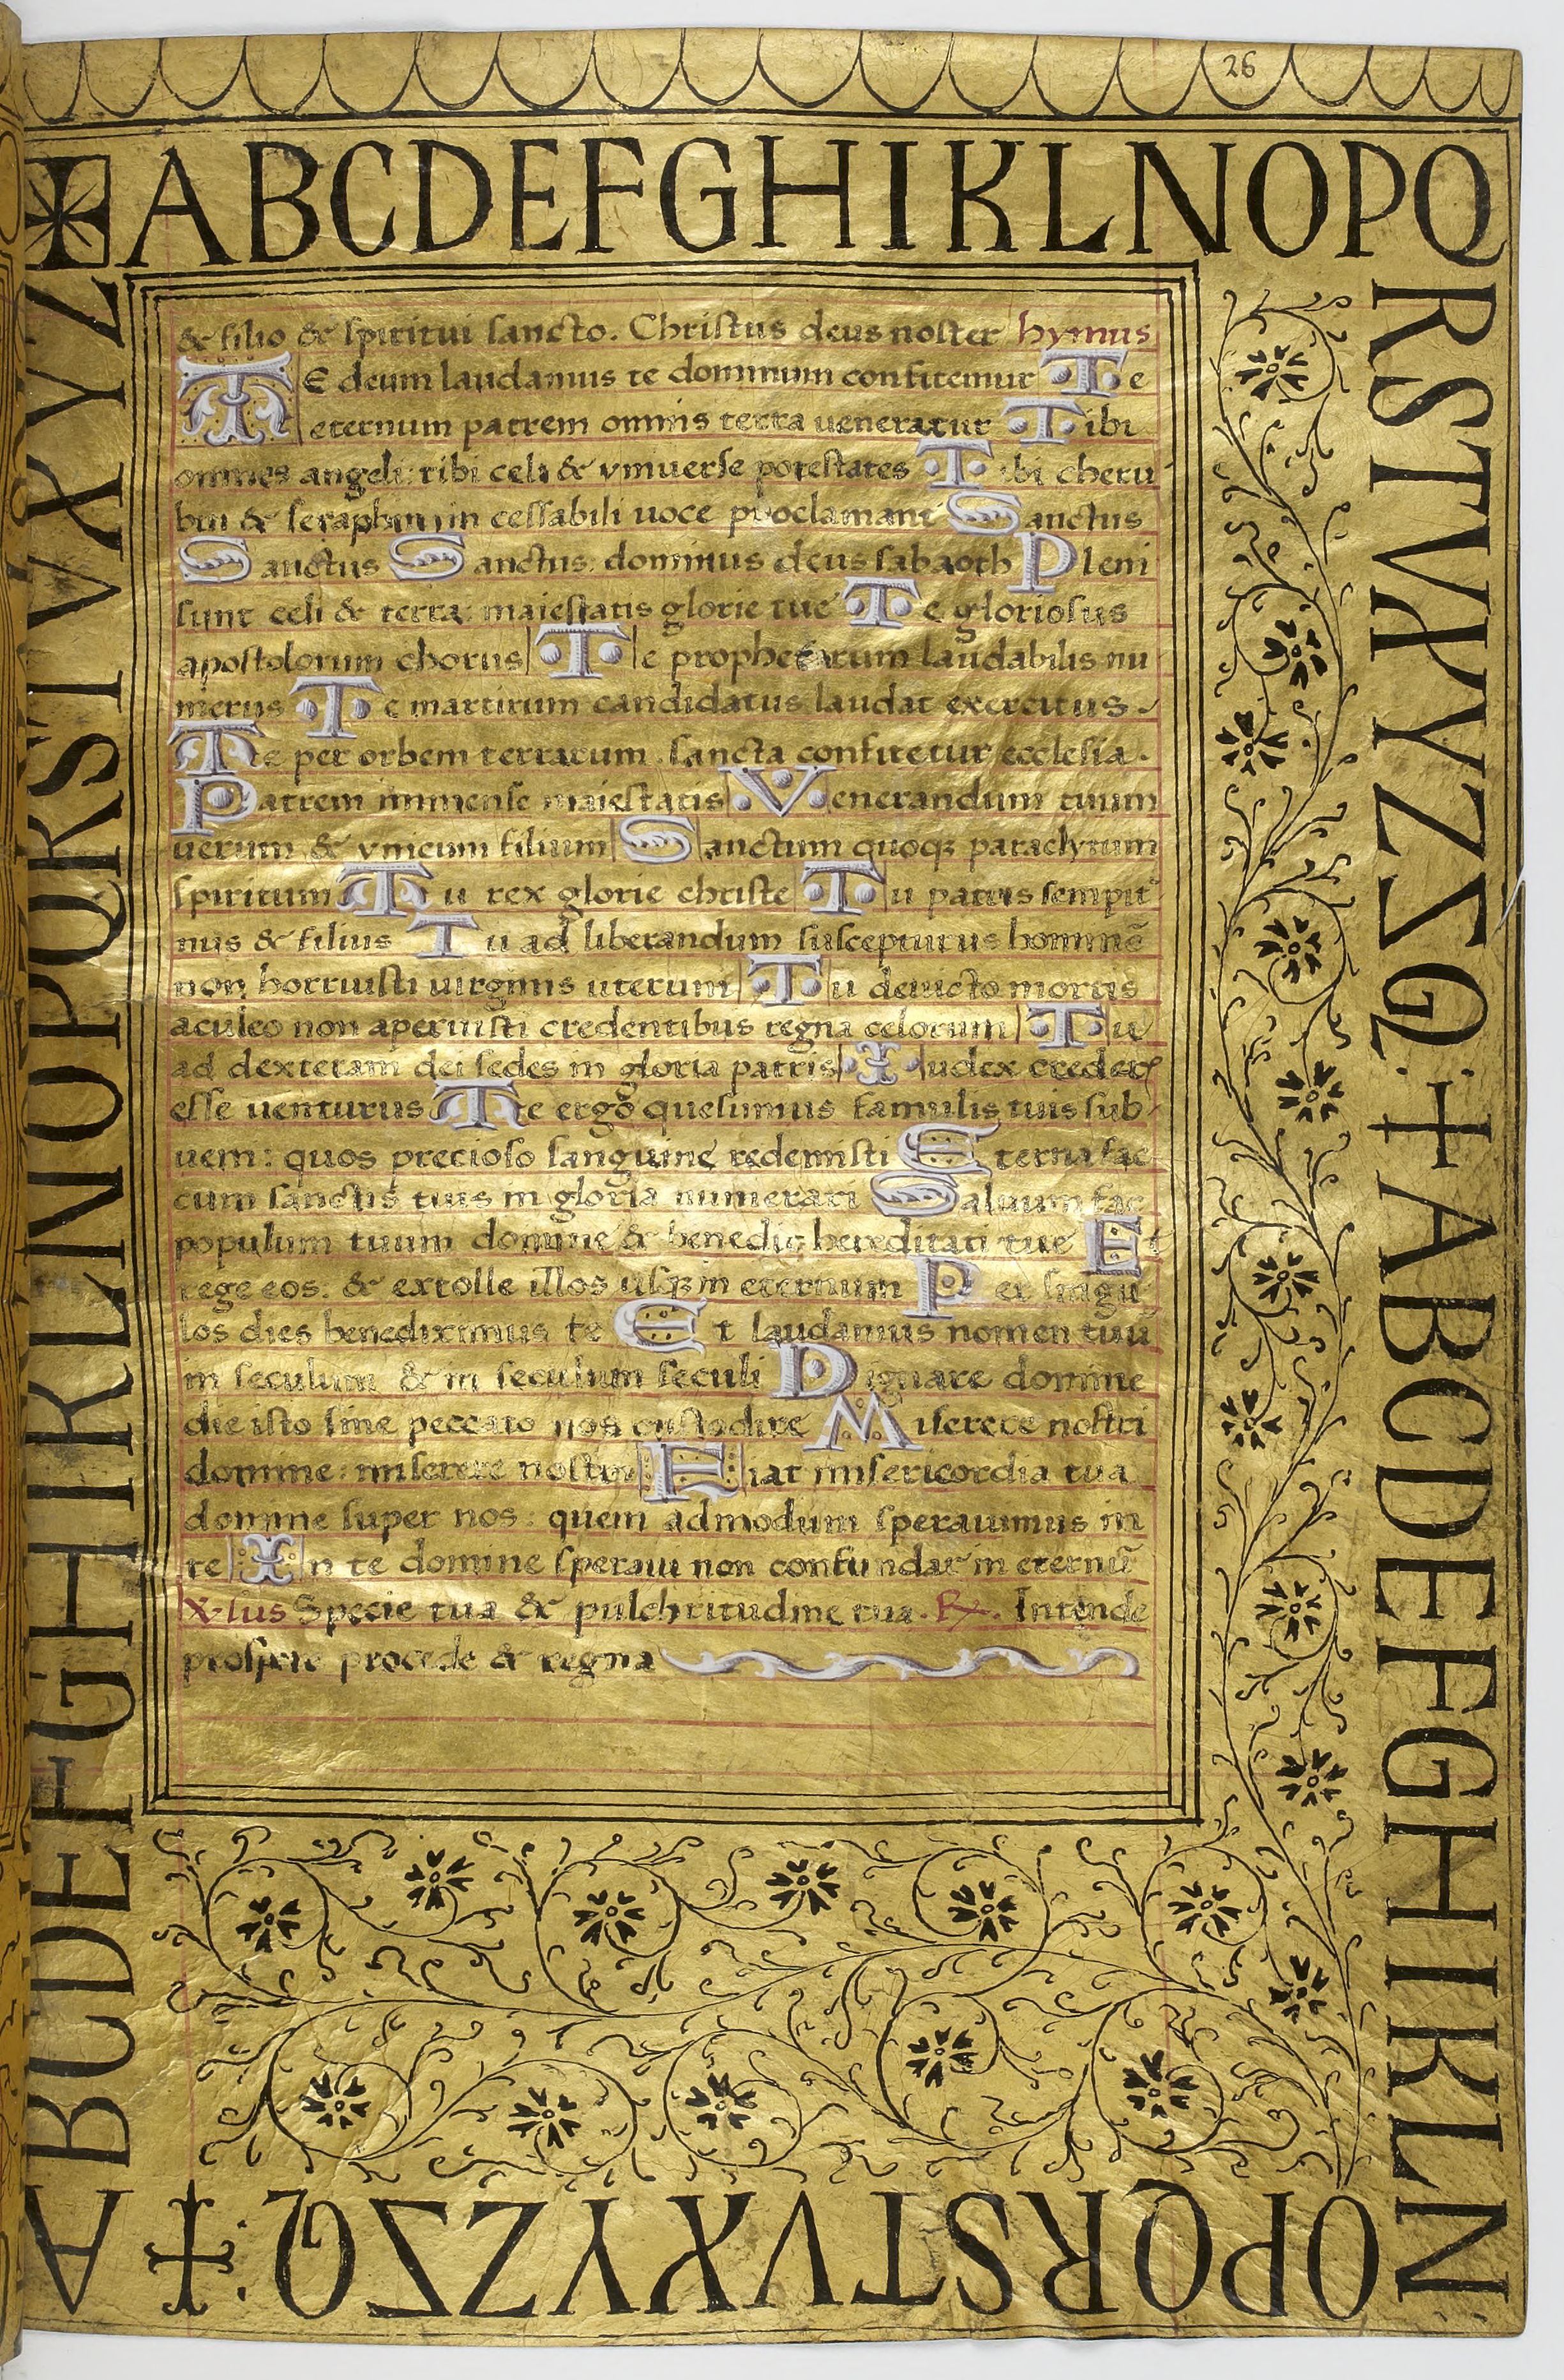 26
ABCDEFGHIKLNOPQ
RSTVXYZ
& filio & spiritui sancto. Christus deus noster hymus
TE deum laudamus te dominum confitemur Te
eternum patrem omnis terra ueneratur Tibi
omnes angeli: tibi celi & vniuerse potestates Tibi cheru
bin & seraphin in cessabili uoce proclamant Sanctus
Sanctus Sanctus: dominus deus sabaoth Pleni
sunt celi & terra: maiestatis glorie tue Te gloriosus
apostolorum chorus Te prophetarum laudabilis nu
merus Te martirum candidatus laudat exercitus.
Tte per orbem terrarum. sancta confitetur ecclesia.
Patrem immense maiestatis Venerandum tuum
uerum & vnicum filium Sanctum quoqz paraclytum
spiritum Tu rex glorie christe Tu patris sempit
nus & filius Tu ad liberandum suscepturus hominē
non horruisti uirginis uterum Tu deuicto mortis
aculeo non aperuisti credentibus regna celorum Tu
ad dexteram dei sedes in gloria patris Iudex creder
esse uenturus Tte ergo quesumus famulis tuis sub
ueni: quos precioso sanguine redemisti Eterna fac
cum sanctis tuis in gloria numerari Saluum fac
populum tuum domine & benedic hereditati tue Et
rege eos. & extolle illos usqz in eternum Per singu
los dies benediximus te Et laudamus nomen tuū
in seculum & in seculum seculi Dignare domine
die isto sine peccato nos custodire Miserere nostri
domine: miserere nostri Fiat misericordia tua
domine super nos: quem admodum sperauimus in
te In te domine speraui non confundar in eternū
X·lus Specie tua & pulchritudine tua. R. Intende
prospere procede & regna
RSTVXYZ ABCDEFGHIKLN
OPQRSTVXYZ
ABCDEFGHIKLNOPQRSTVXYZ